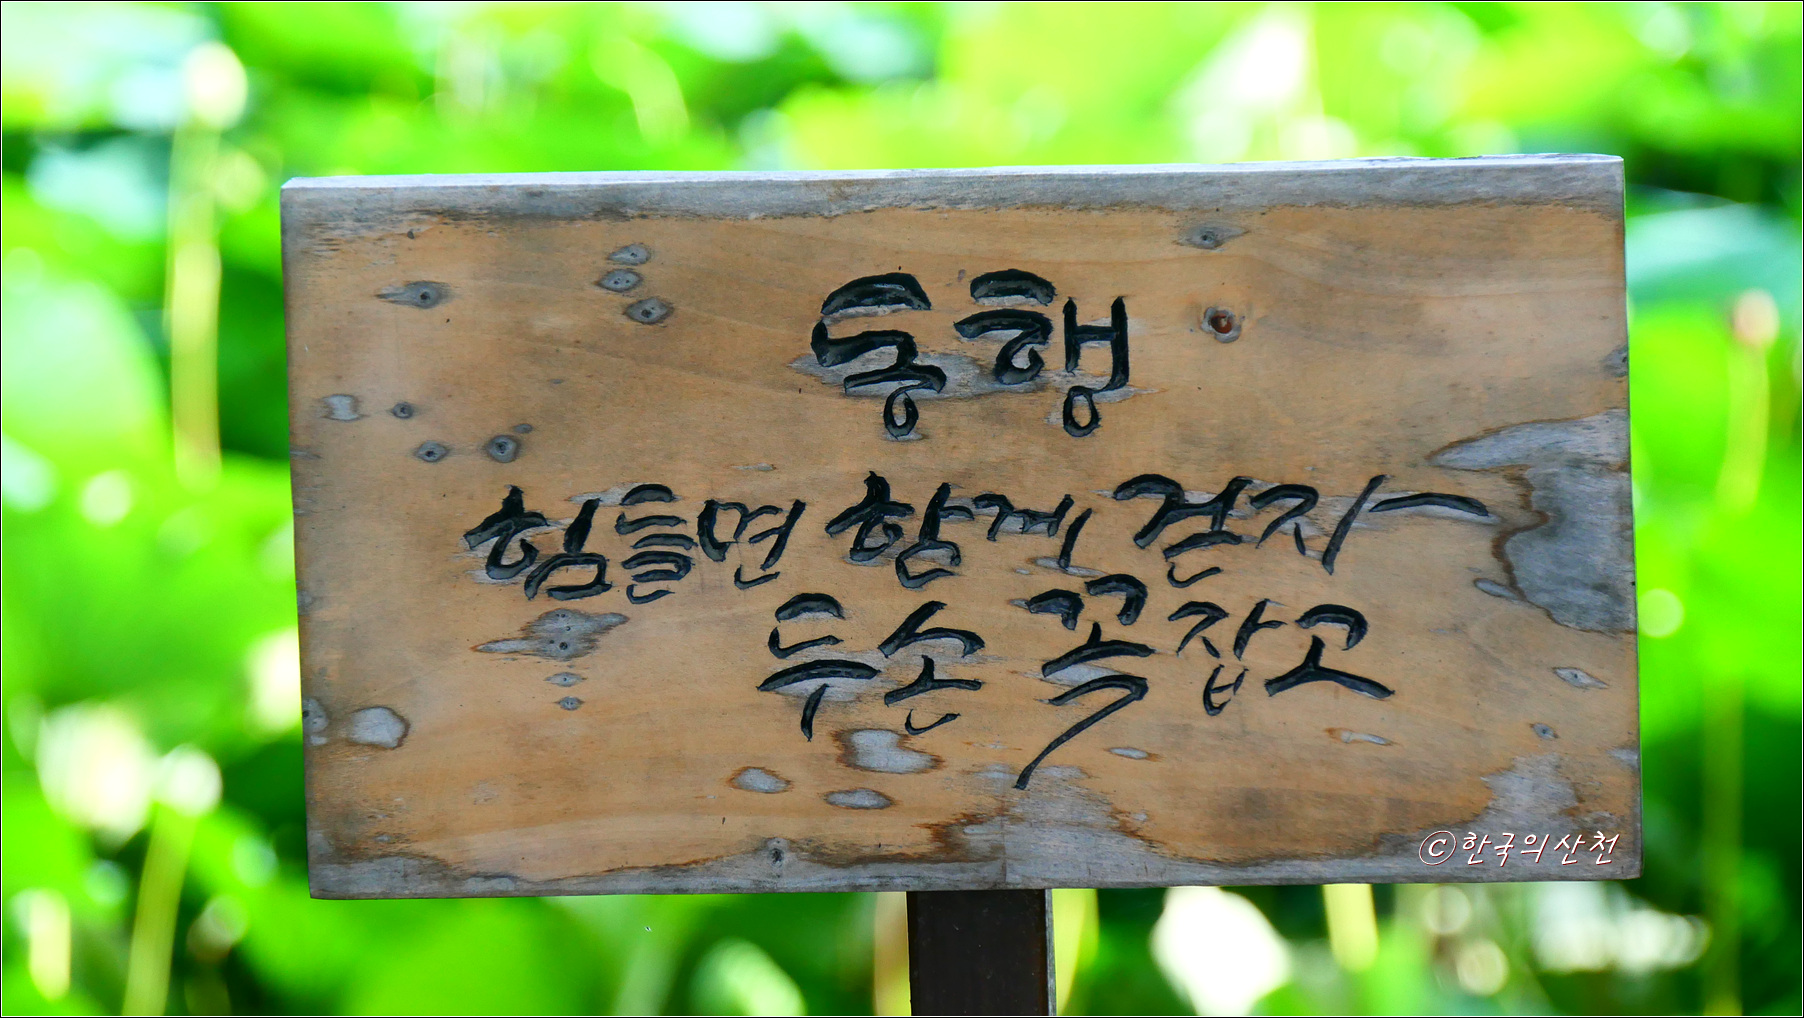 동행
힘들면 함께 걷자
두손 꼭잡고
©한국의산천